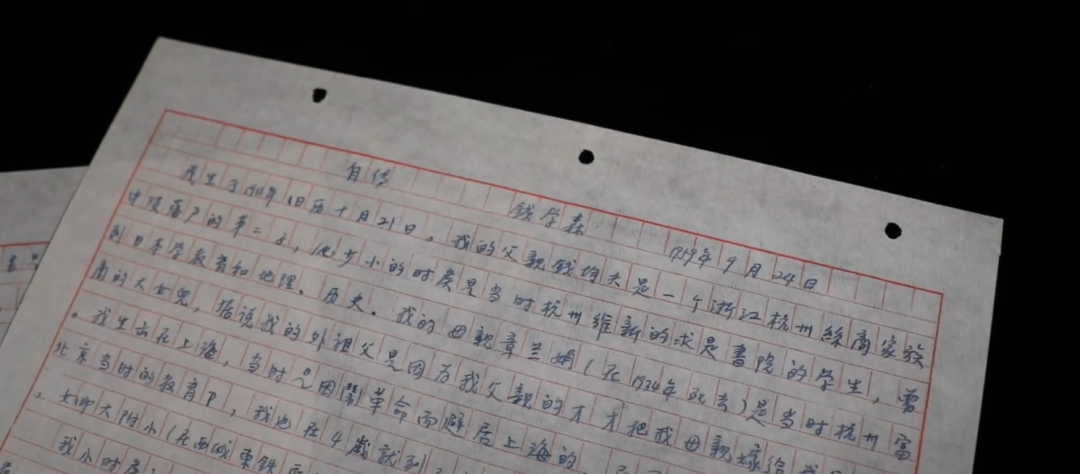 自传
钱学森
1959年9月24日
我生于1911年旧历十月21日。我的父亲钱均夫是一个浙江杭州丝商家族
中没落户的第二子,他少小的时候是当时杭州维新的求是書院的学生,曾
到日本学教育和地理、历史。我的母親章兰娟(在1934年死去)是当时杭州富
商的大女儿,据说我的外祖父是因为我父親的才才把我母親嫁给
。我生出在上海,当时是因闹革命而避居上海的
北京当时的教育部,我也在4歲就到
,女师大附小(在西城東鉄
我小时候